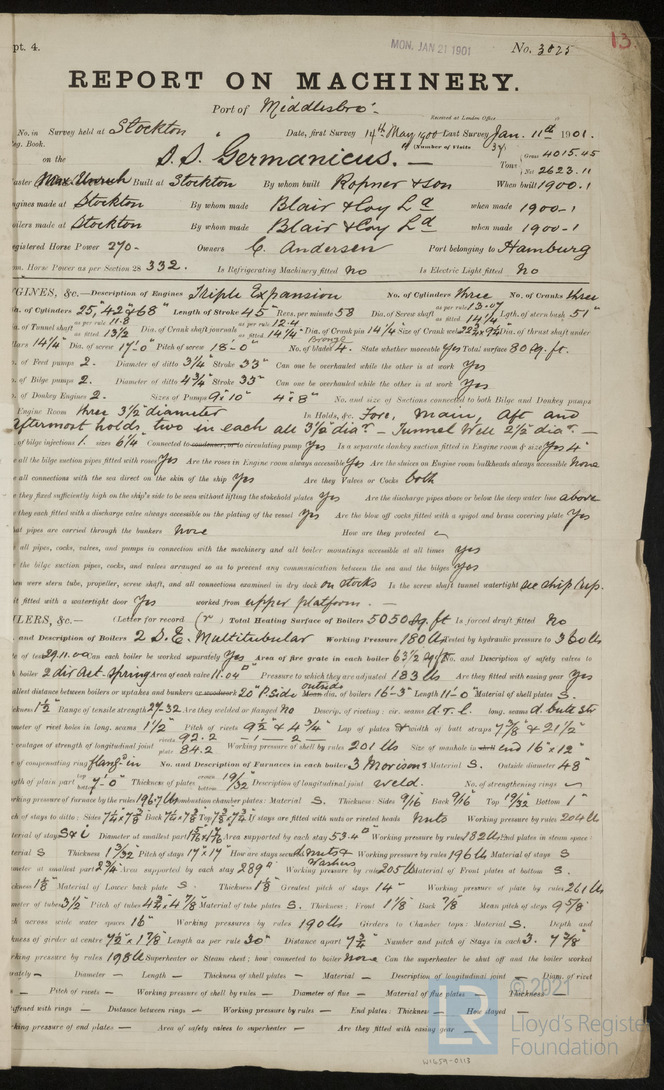 pt. 4.
MON. JAN 21 1901
No. 3825
13.
REPORT ON MACHINERY.
Port of Middlesbro'
Received at London Office
No. in Survey held at Stockton Date, first Survey 14th May 1900 Last Survey Jan. 11th 1901.
eg. Book. (Number of Visits 34
on the S.S. Germanicus. — Tons Gross 4015.45
Net 2623.11
aster Built at Stockton By whom built Ropner & Son When built 1900.1
ngines made at Stockton By whom made Blair & Coy Ld when made 1900-1
oilers made at Stockton By whom made Blair & Coy Ld when made 1900-1
egistered Horse Power 270- Owners C. Andersen Port belonging to Hamburg
om. Horse Power as per Section 28 332. Is Refrigerating Machinery fitted No Is Electric Light fitted No
GINES, &c.—Description of Engines Triple Expansion No. of Cylinders three No. of Cranks three
. of Cylinders 25", 42" & 68" Length of Stroke 45" Revs. per minute 58 Dia. of Screw shaft as per rule 13.07 as fitted 14¼ Lgth. of stern bush 51"
. of Tunnel shaft as per rule 11.8 as fitted 13½ Dia. of Crank shaft journals as per rule 12.4 as fitted 14¼ Dia. of Crank pin 14¼" Size of Crank webs 22¾ x 9¼ Dia. of thrust shaft under
llars 14¼" Dia. of screw 17'-0" Pitch of screw 18'-0" No. of blades 4. Bronze State whether moveable Yes Total surface 80 sq. ft.
. of Feed pumps 2. Diameter of ditto 3¼" Stroke 33" Can one be overhauled while the other is at work Yes
. of Bilge pumps 2. Diameter of ditto 4¾" Stroke 33" Can one be overhauled while the other is at work Yes
. of Donkey Engines 2. Sizes of Pumps 9" & 10" 4" & 8" No. and size of Suctions connected to both Bilge and Donkey pumps
Engine Room three 3½" diameter In Holds, &c. Fore, Main, Aft and
aftermost holds two in each all 3½" diar. — Tunnel Well 2½" diar. —
. of bilge injections 1. sizes 6¼" Connected to condenser, or to circulating pump Yes Is a separate donkey suction fitted in Engine room & size Yes 4"
e all the bilge suction pipes fitted with roses Yes Are the roses in Engine room always accessible Yes Are the sluices on Engine room bulkheads always accessible None
e all connections with the sea direct on the skin of the ship Yes Are they Valves or Cocks both
e they fixed sufficiently high on the ship's side to be seen without lifting the stokehold plates Yes Are the discharge pipes above or below the deep water line above
e they each fitted with a discharge valve always accessible on the plating of the vessel Yes Are the blow off cocks fitted with a spigot and brass covering plate Yes
hat pipes are carried through the bunkers none How are they protected —
e all pipes, cocks, valves, and pumps in connection with the machinery and all boiler mountings accessible at all times Yes
e the bilge suction pipes, cocks, and valves arranged so as to prevent any communication between the sea and the bilges Yes
hen were stern tube, propeller, screw shaft, and all connections examined in dry dock on stocks Is the screw shaft tunnel watertight see ship rep.
it fitted with a watertight door Yes worked from upper platform. —
ILERS, &c.— (Letter for record (r) Total Heating Surface of Boilers 5050 sq. ft Is forced draft fitted No
. and Description of Boilers 2 D.E. Multitubular Working Pressure 180 lbs Tested by hydraulic pressure to 360 lbs
te of test 29.11.00 Can each boiler be worked separately Yes Area of fire grate in each boiler 63½ sq ft No. and Description of safety valves to
h boiler 2 dir act. Spring Area of each valve 11.04" Pressure to which they are adjusted 183 lbs Are they fitted with easing gear Yes
allest distance between boilers or uptakes and bunkers or woodwork 20" P. Side outside Mean dia. of boilers 16'-3" Length 11'-0" Material of shell plates S.
ickness 1½" Range of tensile strength 27-32 Are they welded or flanged No Descrip. of riveting: cir. seams d.r.l. long. seams d. butt str
ameter of rivet holes in long. seams 1½" Pitch of rivets 9½" & 4¾" Lap of plates & width of butt straps 7⅞" & 21½"
ercentages of strength of longitudinal joint rivets 92.2 plate 84.2 Working pressure of shell by rules 201 lbs Size of manhole in shell end 16" x 12"
e of compensating ring flang'd in No. and Description of Furnaces in each boiler 3 Morisons Material S. Outside diameter 48"
ngth of plain part top bottom 7'-0" Thickness of plates crown bottom 19/32" Description of longitudinal joint weld. No. of strengthening rings —
orking pressure of furnace by the rules 196.7 lbs Combustion chamber plates: Material S. Thickness: Sides 9/16" Back 9/16" Top 19/32" Bottom 1"
ch of stays to ditto: Sides Back Top If stays are fitted with nuts or riveted heads Nuts Working pressure by rules 204 lbs
terial of stays S & i Diameter at smallest part Area supported by each stay 53.4" Working pressure by rules 182 lbs End plates in steam space:
terial S Thickness 1 3/32" Pitch of stays 17" x 17" How are stays secured d. nuts & Washers Working pressure by rules 196 lbs Material of stays S
meter at smallest part 2¾" Area supported by each stay 289" Working pressure by rules 205 lbs Material of Front plates at bottom S.
ickness 1⅛" Material of Lower back plate S. Thickness 1⅛" Greatest pitch of stays 14" Working pressure of plate by rules 261 lbs
meter of tubes 3½" Pitch of tubes 4¾" x 4⅞" Material of tube plates S. Thickness: Front 1⅛" Back ⅞" Mean pitch of stays 9⅝"
ch across wide water spaces 16" Working pressures by rules 190 lbs Girders to Chamber tops: Material S. Depth and
ckness of girder at centre 7½" x 1⅞" Length as per rule 30" Distance apart 7¾" Number and pitch of Stays in each 3. 7⅞"
rking pressure by rules 198 lbs Superheater or Steam chest; how connected to boiler None Can the superheater be shut off and the boiler worked
arately — Diameter — Length — Thickness of shell plates — Material — Description of longitudinal joint — Diam. of rivet
s — Pitch of rivets — Working pressure of shell by rules — Diameter of flue — Material of flue plates — Thickness —
iffened with rings — Distance between rings — Working pressure by rules — End plates: Thickness — How stayed —
rking pressure of end plates — Area of safety valves to superheater — Are they fitted with easing gear —
© 2021
LR
Lloyd's Register
Foundation
W1659-0113